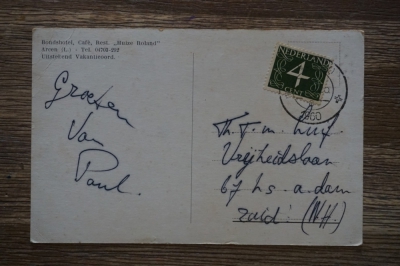 Bondshotel, Café, Rest. „Huize Roland"
Arcen (L.) : Tel. 04703-212
Uitstekend Vakantieoord.
Groeten
Van
Paul.
NEDERLAND
4
CENT
1960
Th. F. m. Lux
Vrijheidslaan
67 hs. a.dam
zuid. (N.H.)